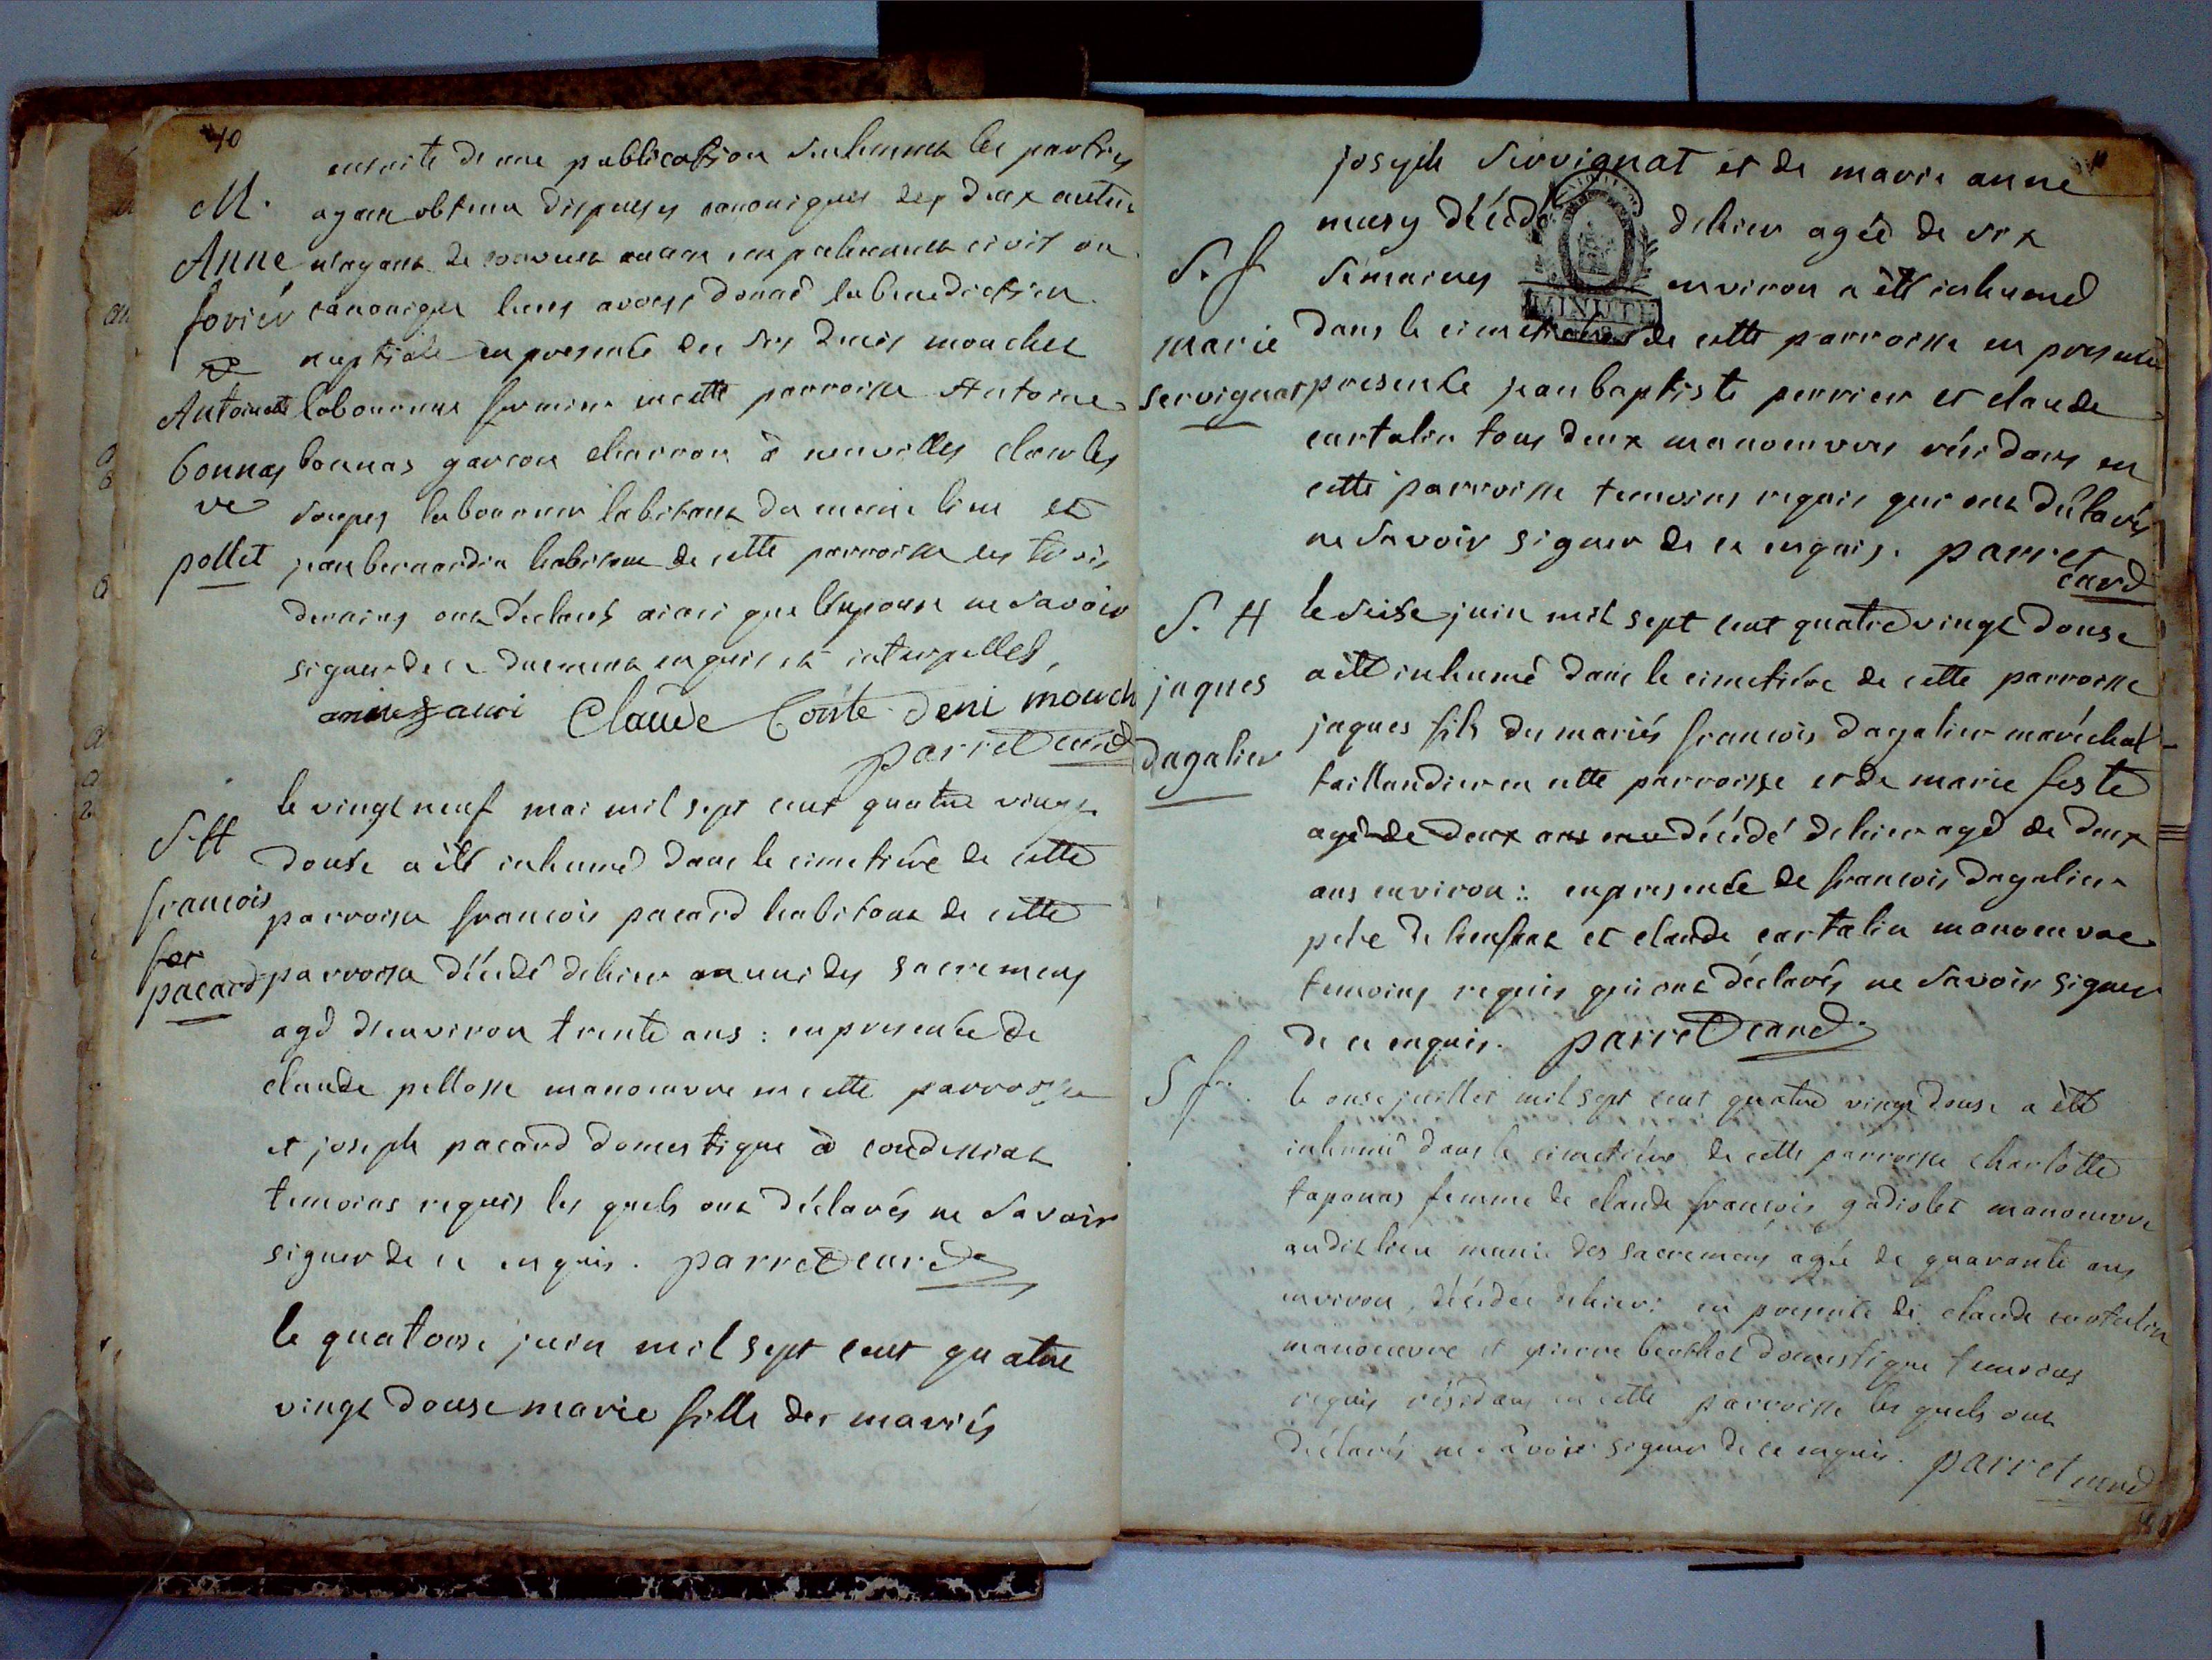 40
ensuite de une publication seulement les parties
M. ayant obtenu dispenses canoniques des deux autres
Anne n'ayant de couvert aucun empechement civil ou
canonique leurs avons donné la benediction
nuptiale en presence des srs denis mouchet
Antoinette laboureur fermier en cette parroisse Antoine
bonnas bonnas garcon charron à neuvilles charles
ve soupes laboureur habitant du meme lieu et
pollet jean bernardin habitant de cette parroisse les trois
derniers ont déclarés ainsi que l'epouse ne savoir
signer de ce duement enquis et interpellés,
Claude Conte deni mouch
parret curé
le vingt neuf mai mil sept cent quatre vingt
S. H douse a èté inhumé dans le cimetière de cette
francois parroisse francois pacard habitant de cette
pacard parroisse décédé dehier muni des sacremens
agé d'environ trente ans : en presence de
claude pellosse manoeuvre en cette parroisse
et joseph pacard domestique à condessiat
temoins requis les quels ont déclarés ne savoir
signer de ce enquis. parret curé
le quatorse juin mil sept cent quatre
vingt douse marie fille des mariés
joseph servignat et de marie anne
musy décédé dehier agée de six
S. f semaines environ a èté inhumé
MINUTE
marie dans le cimetière de cette parroisse en presence
servignat presence jean baptiste perrier et claude
cartalin tous deux manoeuvres résidans en
cette parroisse temoins requis qui ont déclarés
ne savoir signer de ce enquis. parret
curé
S. H le seise juin mil sept cent quatre vingt douse
a èté inhumé dans le cimetière de cette parroisse
jaques jaques fils des mariés francois dagalier maréchal
dagalier taillandier en cette parroisse et de marie feste
agé de deux ans décédé dehier agé de deux
ans environ : en presence de francois dagalier
pere de l'enfant et claude cartalin manoeuvre
temoins requis qui ont déclarés ne savoir signer
de ce enquis. parret curé
S f. le onse juillet mil sept cent quatre vingt douse a èté
inhumé dans le cimetière de cette parroisse charlotte
taponas femme de claude francois gadiolet manoeuvre
audit lieu munie des sacremens agée de quarante ans
environ, décédée dehier: en presence de claude cartalin
manoeuvre et pierre berthet domestique temoins
requis résidans en cette parroisse les quels ont
déclarés ne savoir signer de ce enquis. parret curé